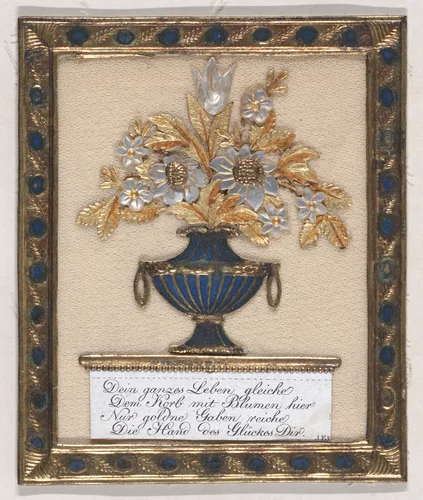 Dein ganzes Leben gleiche
Dem Korb mit Blumen hier
Nur goldne Gaben reiche
Die Hand des Glückes Dir.